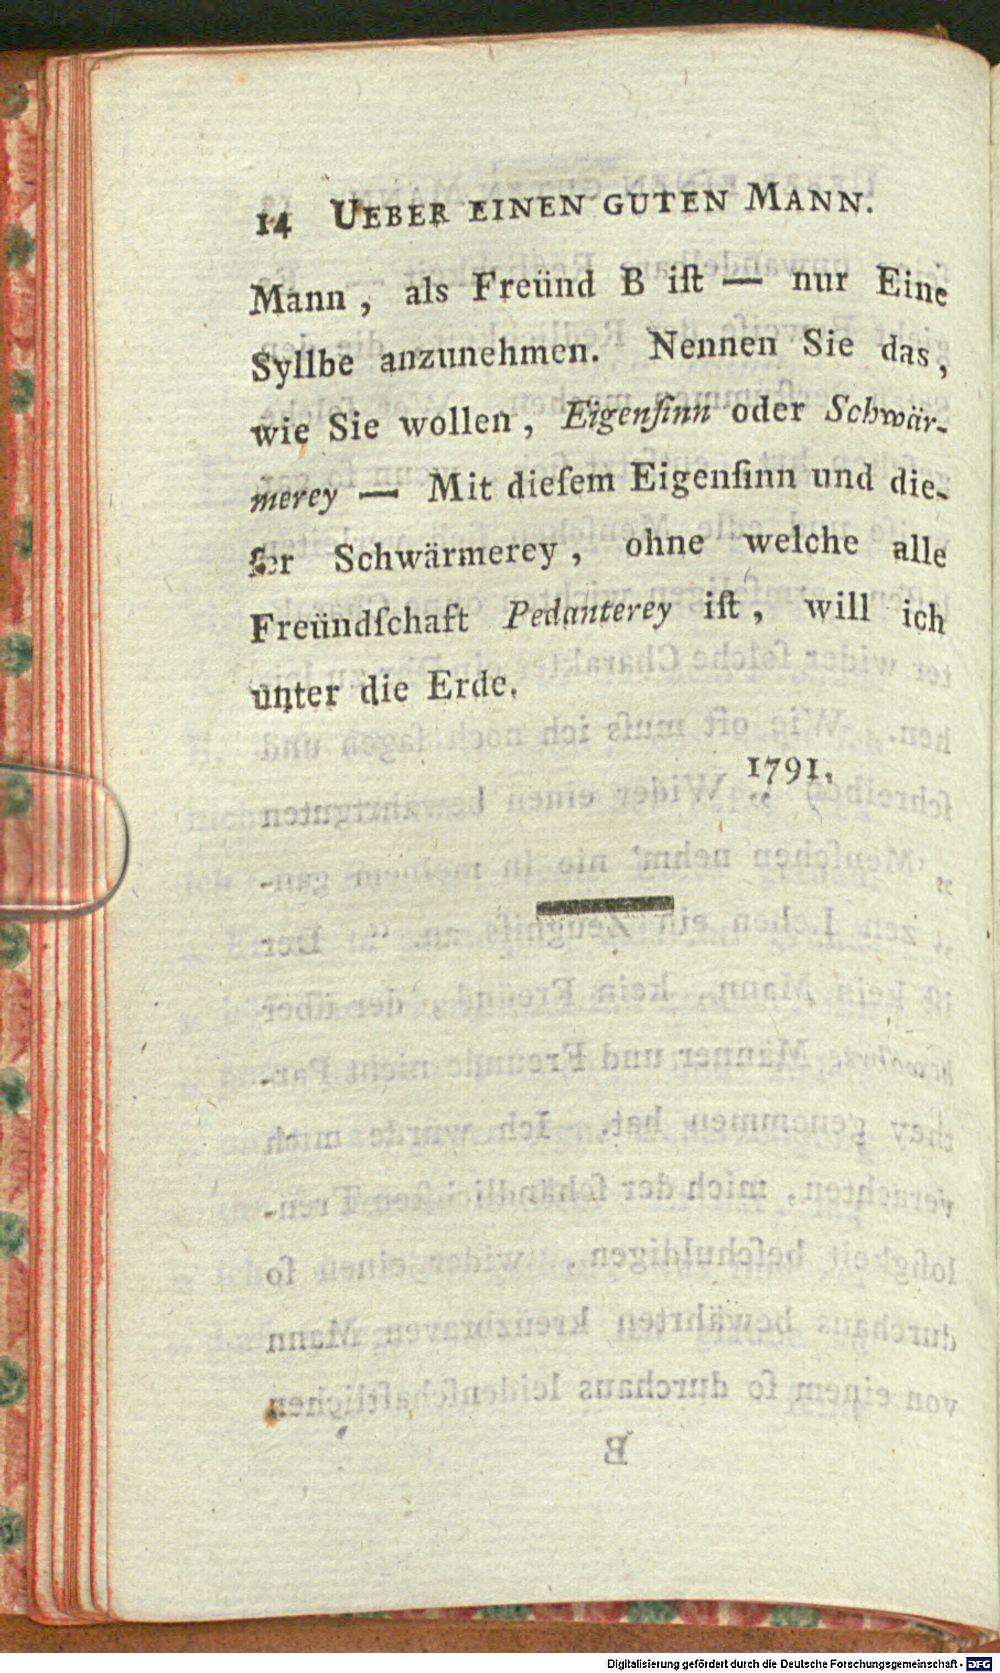 14 UEBER EINEN GUTEN MANN.
Mann, als Freünd B iſt — nur Eine
Syllbe anzunehmen. Nennen Sie das,
wie Sie wollen, Eigenſinn oder Schwär-
merey — Mit dieſem Eigenſinn und die-
ſer Schwärmerey, ohne welche alle
Freündſchaft Pedanterey iſt, will ich
unter die Erde.
1791.
Digitalisierung gefördert durch die Deutsche Forschungsgemeinschaft - DFG